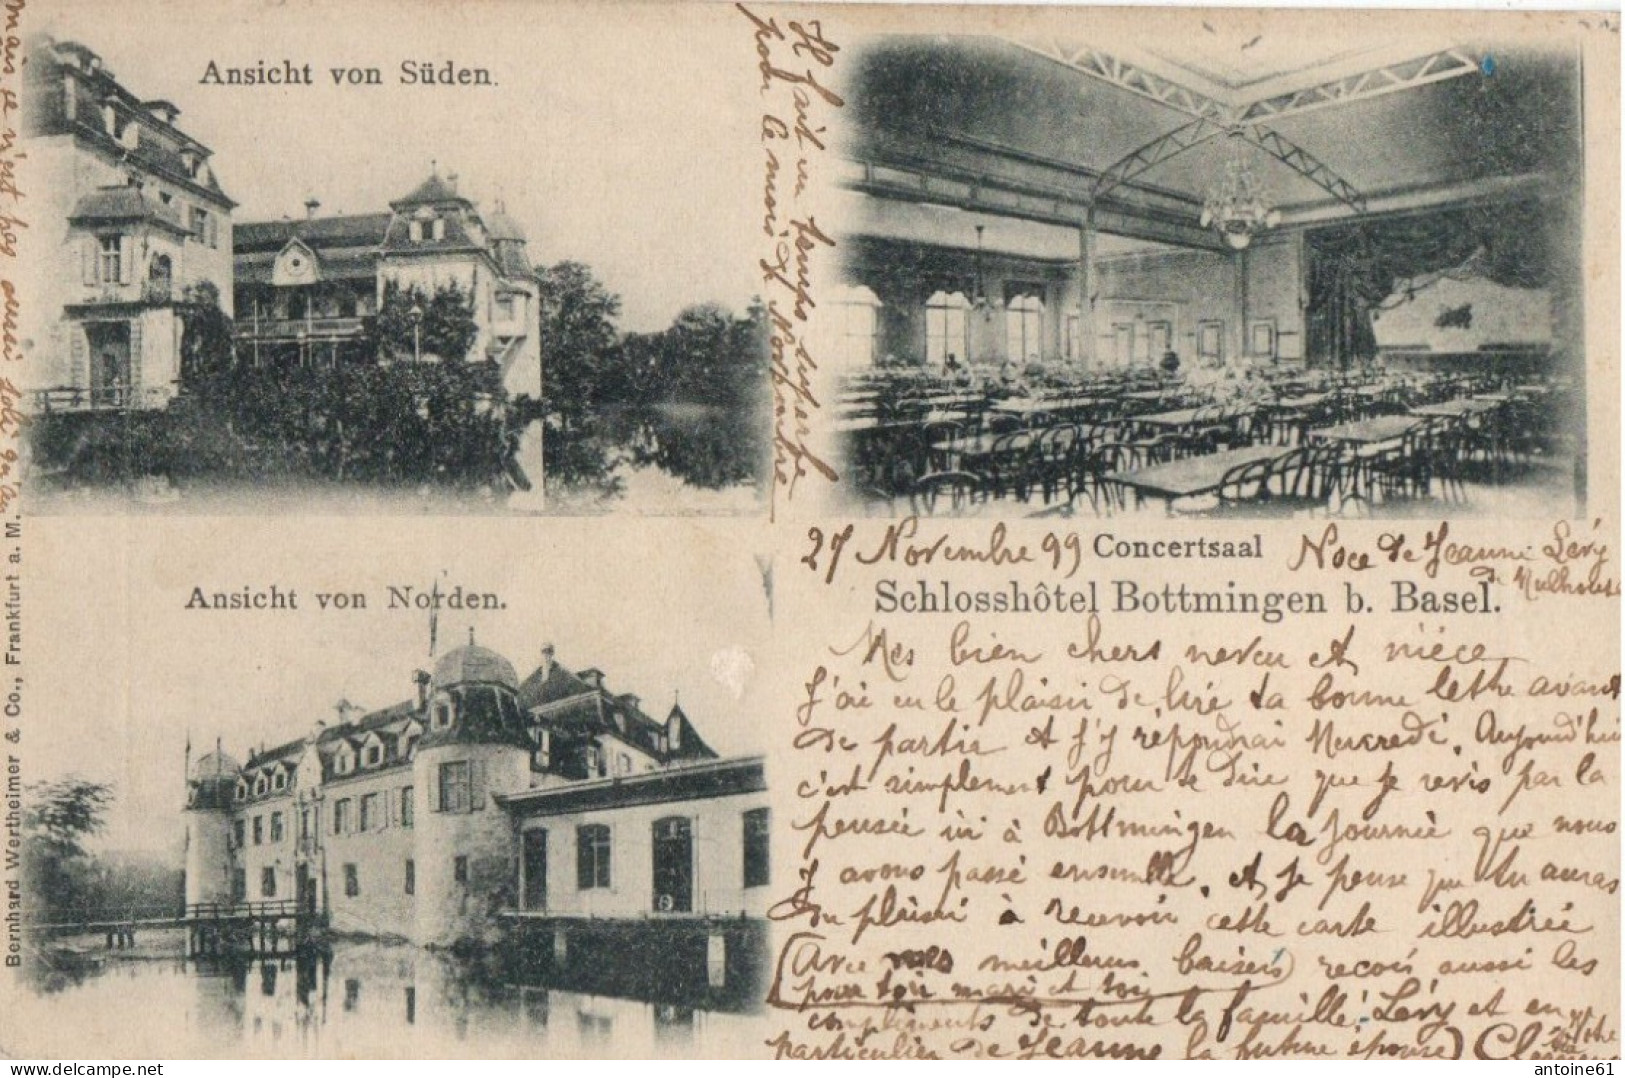 Ansicht von Süden.
Il fait un temps superbe
pour le mois de Novembre
mais ce n'est pas aussi
Ansicht von Norden.
Bernhard Wertheimer & Co., Frankfurt a. M.
27 Novembre 99
Concertsaal
Noce de Jeanne Lévy
de Mulhouse
Schlosshôtel Bottmingen b. Basel.
Mes bien chers neveu et nièce
J'ai eu le plaisir de lire ta bonne lettre avant
de partir et j'y répondrai Mercredi. Aujourd'hui
c'est simplement pour te dire que je revis par la
pensée ici à Bottmingen la journée que nous
y avons passé ensemble, et je pense que tu auras
du plaisir à recevoir cette carte illustrée
(Avec mes meilleurs baisers) reçois aussi les
pour ton mari et toi
compliments de toute la famille Lévy et en
particulier de Jeanne la future épouse)
antoine61